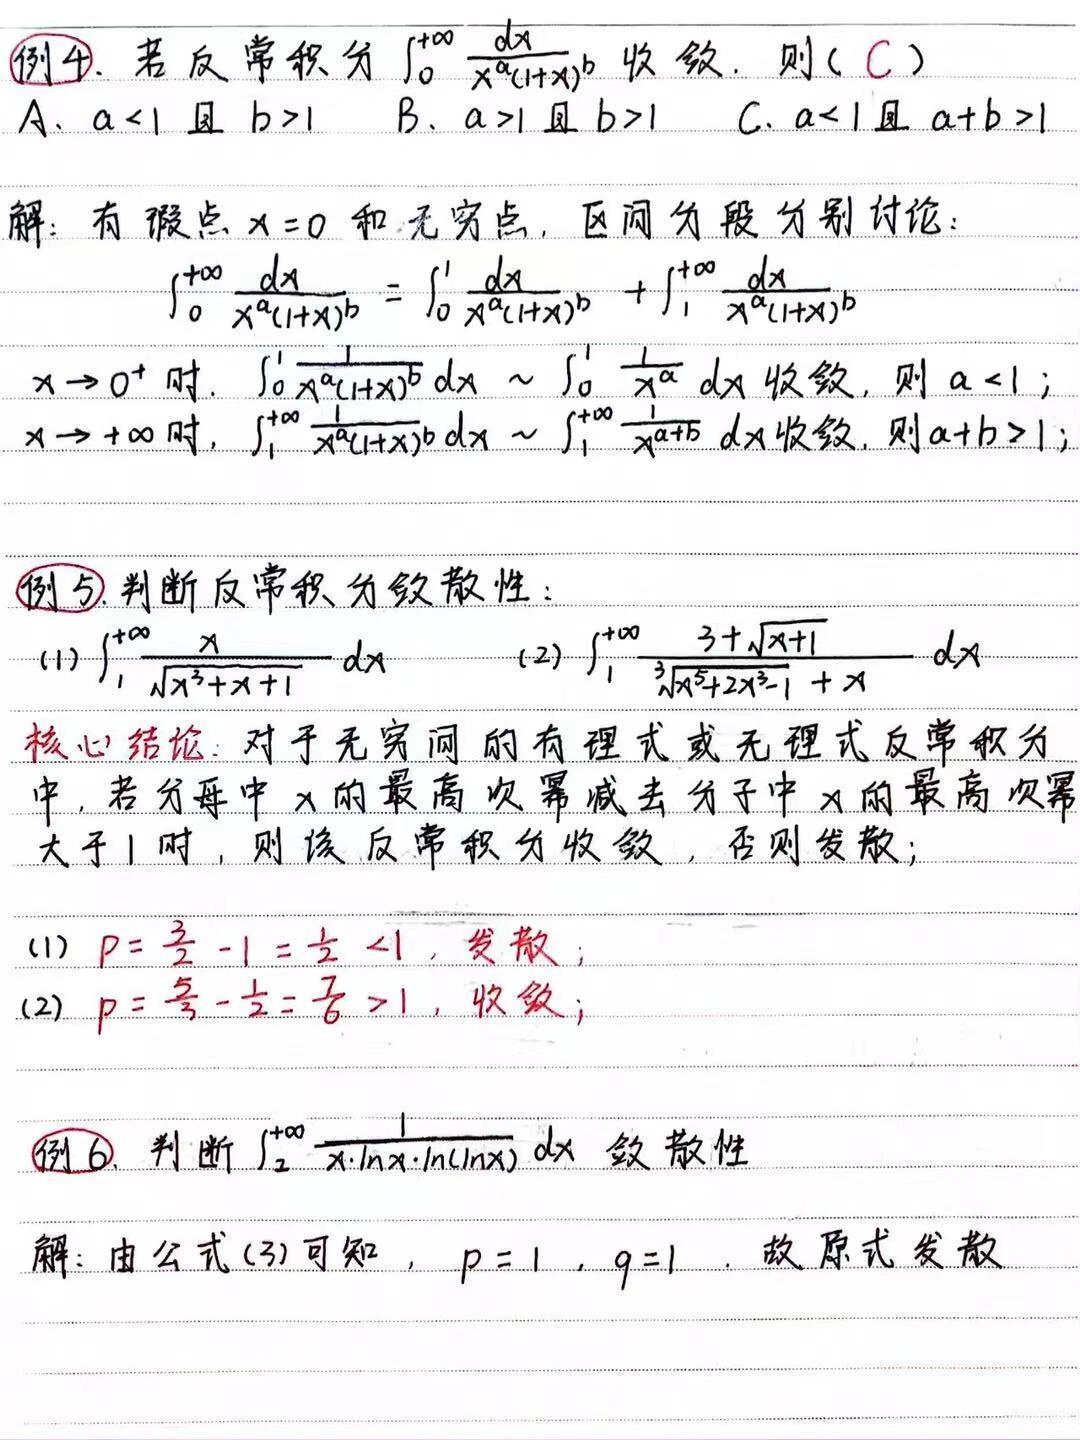 例4. 若反常积分 ∫₀^{+∞} dx/(x^a(1+x)^b) 收敛. 则( C )
A. a<1 且 b>1 B. a>1 且 b>1 C. a<1 且 a+b>1
解: 有瑕点 x=0 和无穷点, 区间分段分别讨论:
∫₀^{+∞} dx/(x^a(1+x)^b) = ∫₀^1 dx/(x^a(1+x)^b) + ∫₁^{+∞} dx/(x^a(1+x)^b)
x→0⁺ 时. ∫₀^1 1/(x^a(1+x)^b) dx ~ ∫₀^1 1/x^a dx 收敛, 则 a<1;
x→+∞ 时, ∫₁^{+∞} 1/(x^a(1+x)^b) dx ~ ∫₁^{+∞} 1/x^{a+b} dx 收敛, 则 a+b>1;
例5. 判断反常积分敛散性:
(1) ∫₁^{+∞} x/√(x³+x+1) dx (2) ∫₁^{+∞} (3+√(x+1))/(∛(x⁵+2x³-1) + x) dx
核心结论: 对于无穷间的有理式或无理式反常积分
中, 若分母中 x 的最高次幂减去分子中 x 的最高次幂
大于1时, 则该反常积分收敛, 否则发散;
(1) p = 3/2 - 1 = 1/2 < 1, 发散;
(2) p = 5/3 - 1/2 = 7/6 > 1, 收敛;
例6. 判断 ∫₂^{+∞} 1/(x·lnx·ln(lnx)) dx 敛散性
解: 由公式(3)可知, p=1, q=1. 故原式发散